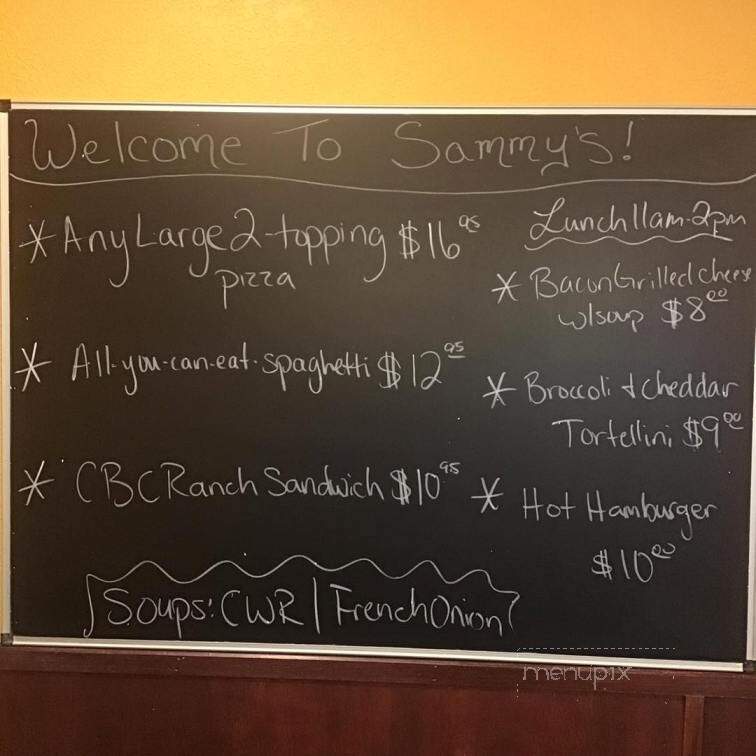 Welcome To Sammy's!
* Any Large 2-topping $16 95
pizza
* All-you-can-eat-spaghetti $12 95
* CBC Ranch Sandwich $10 95
Soups: CWR | French Onion
Lunch 11am-2pm
* Bacon Grilled cheese
w/soup $8 00
* Broccoli & cheddar
Tortellini $9 00
* Hot Hamburger
$10 00
menupix